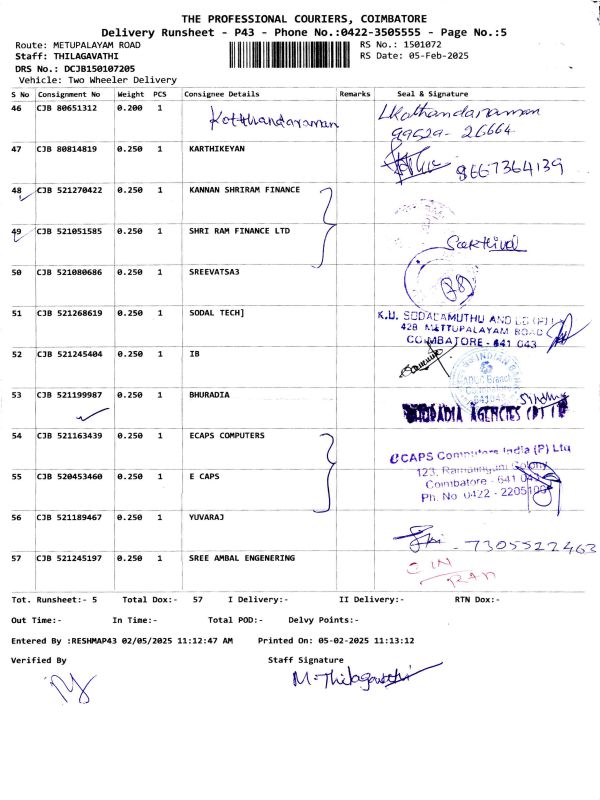 THE PROFESSIONAL COURIERS, COIMBATORE
Delivery Runsheet - P43 - Phone No.:0422-3505555 - Page No.:5
Route: METUPALAYAM ROAD RS No.: 1501072
Staff: THILAGAVATHI RS Date: 05-Feb-2025
DRS No.: DCJB150107205
Vehicle: Two Wheeler Delivery
S No Consignment No Weight PCS Consignee Details Remarks Seal & Signature
46 CJB 80651312 0.200 1 Kotthandaraman
99529- 26664
47 CJB 80814819 0.250 1 KARTHIKEYAN
8667364139
48 CJB 521270422 0.250 1 KANNAN SHRIRAM FINANCE
49 CJB 521051585 0.250 1 SHRI RAM FINANCE LTD
Sakthivel
50 CJB 521080686 0.250 1 SREEVATSA3
51 CJB 521268619 0.250 1 SODAL TECH]
K.U. SODALAMUTHU AND
428 METTUPALAYAM ROAD
COIMBATORE - 641 043
52 CJB 521245404 0.250 1 IB
INDIAN
Branch
641043
53 CJB 521199987 0.250 1 BHURADIA
Sindhu
AGENCIES (P)
54 CJB 521163439 0.250 1 ECAPS COMPUTERS
eCAPS Computers India (P) Ltd
123, Ramalingam Colony
55 CJB 520453460 0.250 1 E CAPS
Coimbatore - 641
Ph. No 0422 -
56 CJB 521189467 0.250 1 YUVARAJ
7305522463
57 CJB 521245197 0.250 1 SREE AMBAL ENGENERING
Tot. Runsheet:- 5 Total Dox:- 57 I Delivery:- II Delivery:- RTN Dox:-
Out Time:- In Time:- Total POD:- Delvy Points:-
Entered By :RESHMAP43 02/05/2025 11:12:47 AM Printed On: 05-02-2025 11:13:12
Verified By Staff Signature
M. Thilagavathi